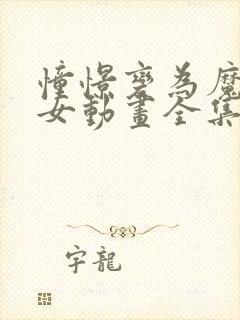 憧憬變為魔
女動畫全集
字龍